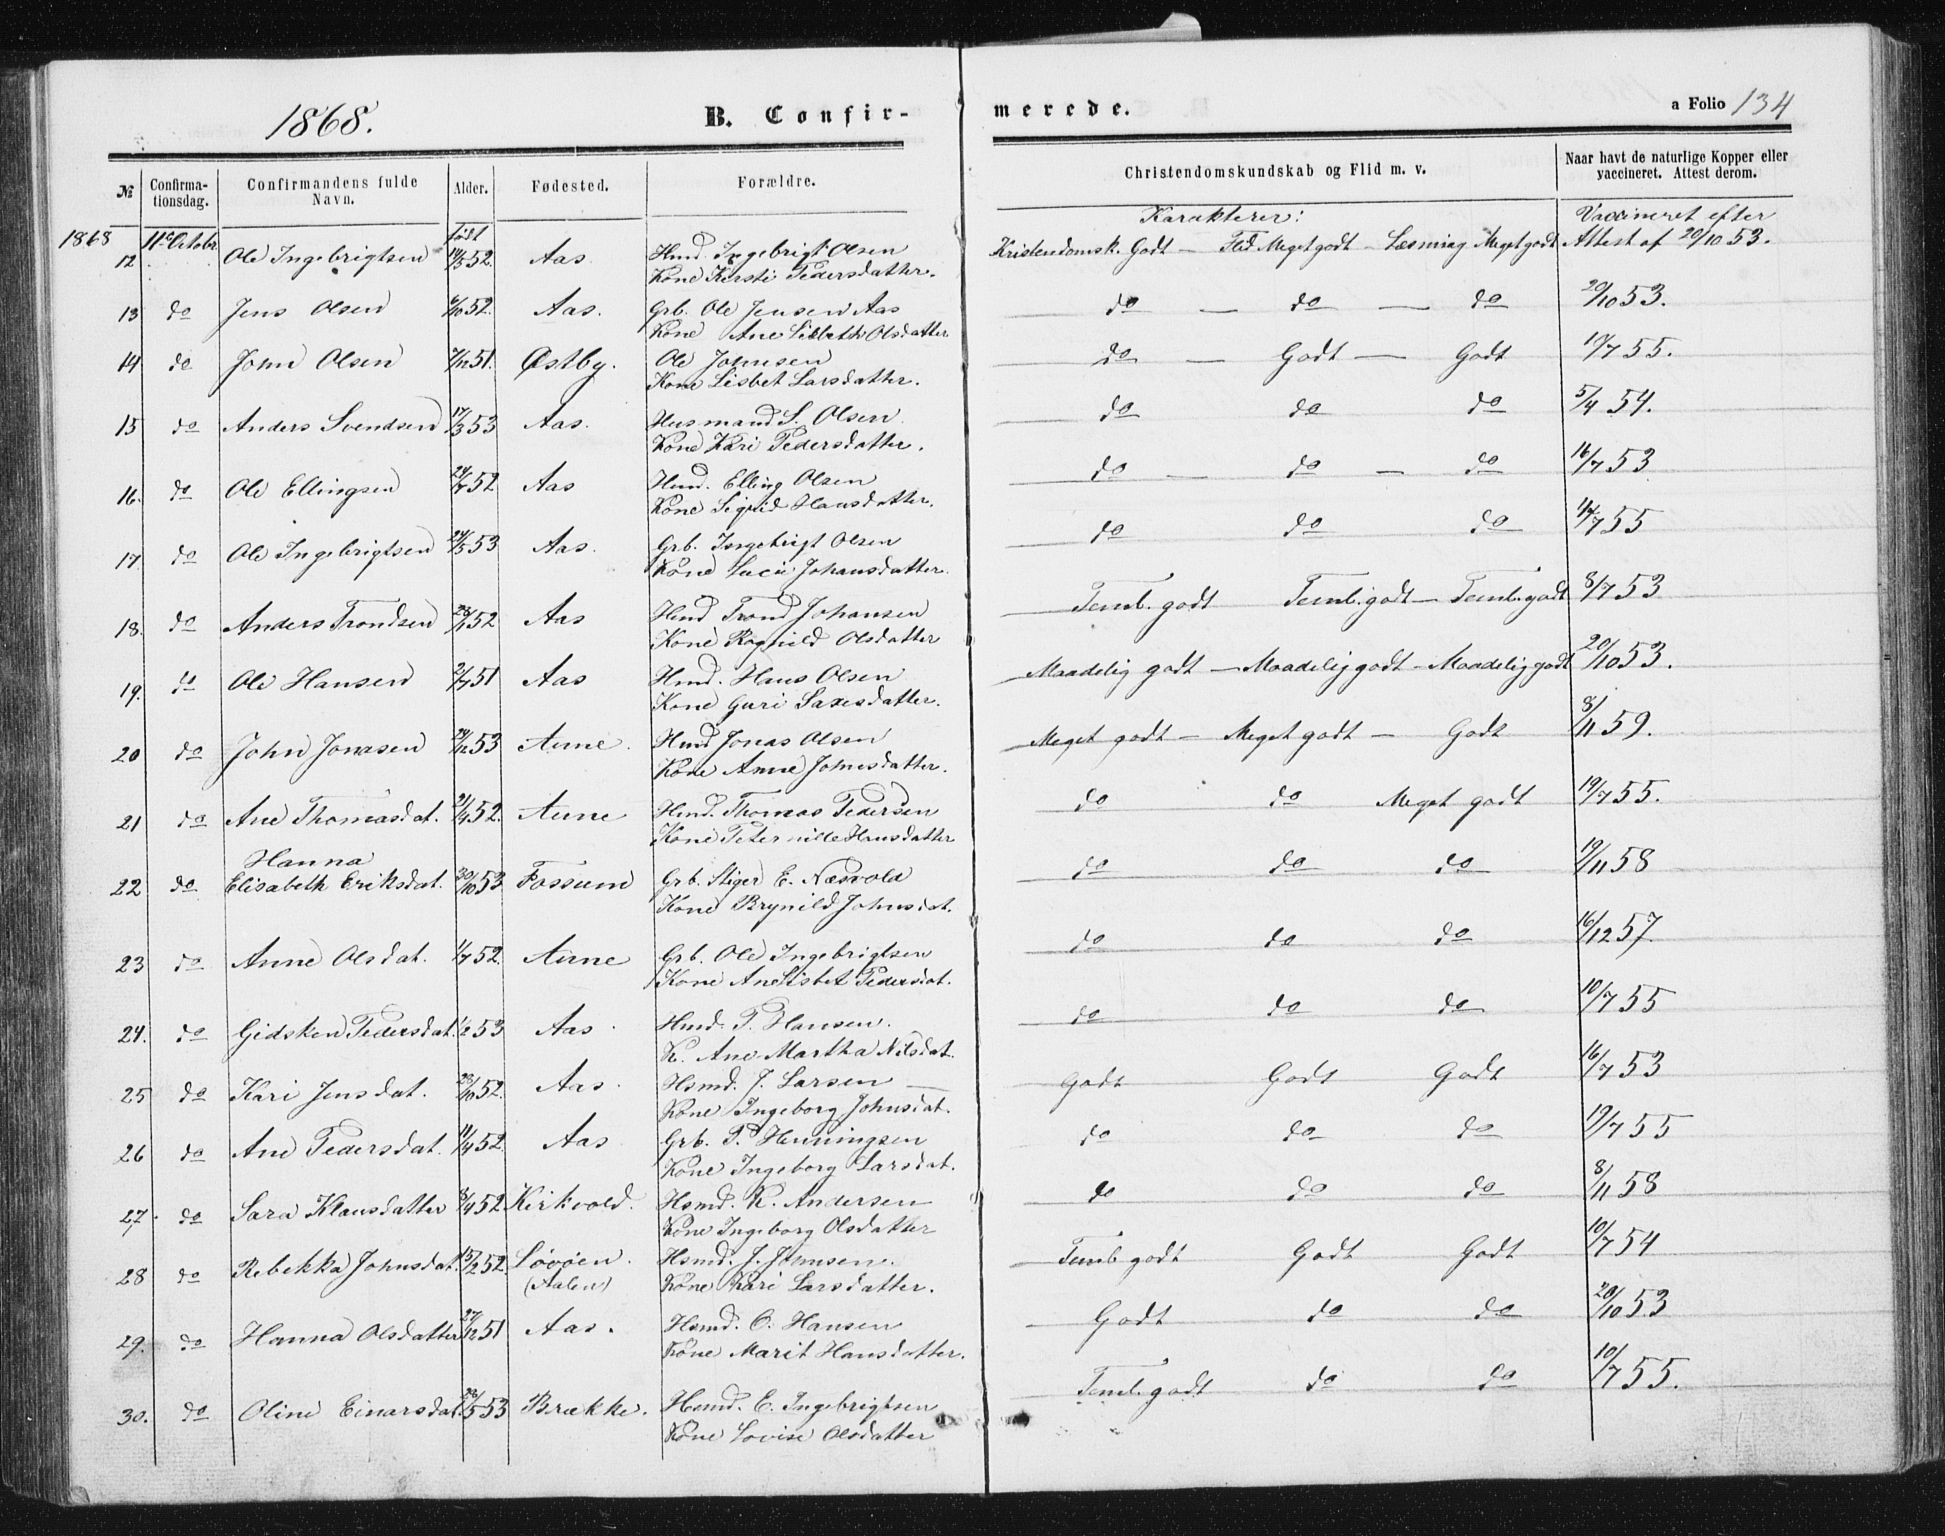 1868.
B. Confirmerede.
a Folio 134
№ Confirmationsdag. Confirmandens fulde Navn. Alder. Fødested. Forældre. Christendomskundskab og Flid m. v. Naar havt de naturlige Kopper eller vaccineret. Attest derom.
født Karakterer: Vaccineret efter
1868 12 11te Octobr Ole Ingebrigtsen 52. Aas Hmd. Ingebrigt Olsen Kristendomsk. Godt — Flid Meget godt — Læsning Meget godt Attest af 20/10 53.
Kone Kersti Pedersdatter.
13 do Jens Olsen 6/10 52. Aas. Grb. Ole Jensen Aas do — do — do 20/10 53.
Kone Ane Lisbeth Olsdatter
14 do John Olsen 7/12 51. Østby. Ole Johnsen do — Godt — Godt 19/7 55.
Kone Lisbet Larsdatter.
15 do Anders Svendsen 17/3 53 Aas. Husmand S. Olsen do do do 5/4 54.
Kone Kari Pedersdatter.
16. do Ole Ellingsen 24/7 52 Aas Hmd. Elling Olsen do — do — do 16/7 53
Kone Sigrid Hansdatter.
17. do Ole Ingebrigtsen 24/5 53 Aas. Grb. Ingebrigt Olsen do do do 14/7 55
Kone Lucie Johansdatter.
18. do Anders Trondsen 23/11 52 Aas Hmd Trond Johansen Teml. godt Teml. godt — Teml. godt 8/7 53
Kone Ragnild Olsdatter
19. do Ole Hansen 2/7 51 Aas Hmd. Hans Olsen Maadelig godt — Maadelig godt — Maadelig godt 20/10 53.
Kone Guri Saxesdatter.
20 do John Jonasen 29/12 53 Aune. Hmd Jonas Olsen Meget godt — Meget godt — Godt 8/11 59.
Kone Anne Johnsdatter.
21 do Ane Thomasdat. 21/4 52. Aune Hmd. Thomas Pedersen do do Meget godt 19/7 55.
Kone Peternille Hansdatter
Hanna
22 do Elisabeth Eriksdat. 30/10 53 Fossum Grb. Stiger E. Næsvold do do do 19/11 58
Kone Brynild Johnsdat.
23 do Anne Olsdat. 1/7 52. Aune Grb. Ole Ingebrigtsen do do do 16/12 57.
Kone Ane Lisbet Pedersdat.
24. do Gidsken Pedersdat. 1/2 53 Aas. Hmd. P. Hansen. do do do 10/7 55
K. Ane Martha Nilsdat.
25 do Kari Jensdat. 23/10 52. Aas. Hsmd. J. Larsen Godt Godt Godt 16/7 53
Kone Ingeborg Johnsdat.
26 do Ane Pedersdat. 11/4 52. Aas Grb. P. Henningsen do do do 19/7 55
Kone Ingeborg Larsdat.
27. do Sara Klausdatter 8/4 52 Kirkvold. Hsmd. K. Andersen do do do 8/11 58
Kone Ingeborg Olsdatter
28 do Rebekka Johnsdat. 15/2 52. Løvøen. Hsmd. J. Johnsen. Teml. godt Godt Godt 10/7 54
(Aalen) Kone Kari Larsdatter.
29. do Hanna Olsdatter 27/12 51 Aas. Hsmd. O. Hansen Godt do do 20/10 53
Kone Marit Hansdatter.
30. do Oline Einarsdat. 23/5 53 Brække. Hsmd. E. Ingebrigtsen Teml. godt do do 10/7 55.
Kone Lovise Olsdatter